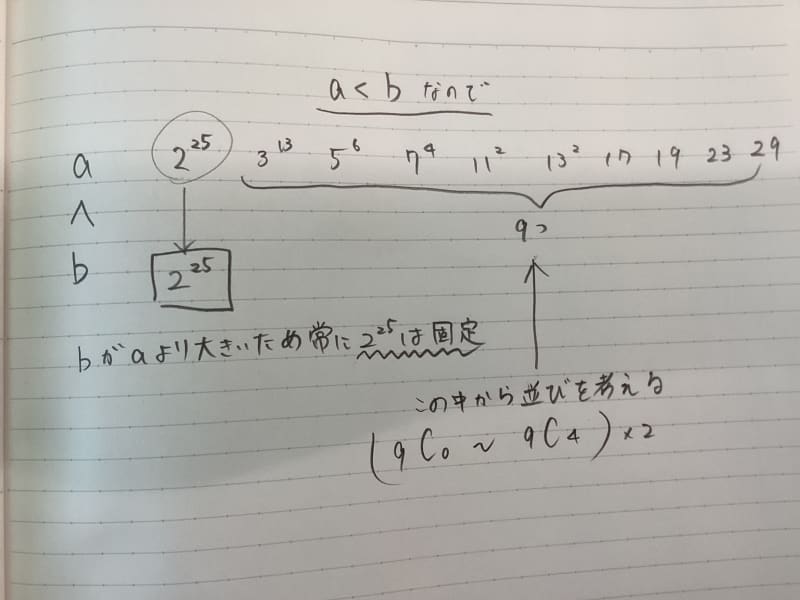 a < b なので
a 2^25 3^13 5^6 7^4 11^2 13^2 17 19 23 29
∧
9つ
b 2^25
bがaより大きいため常に2^25は固定
この中から並びを考える
(9C0 ~ 9C4) ×2